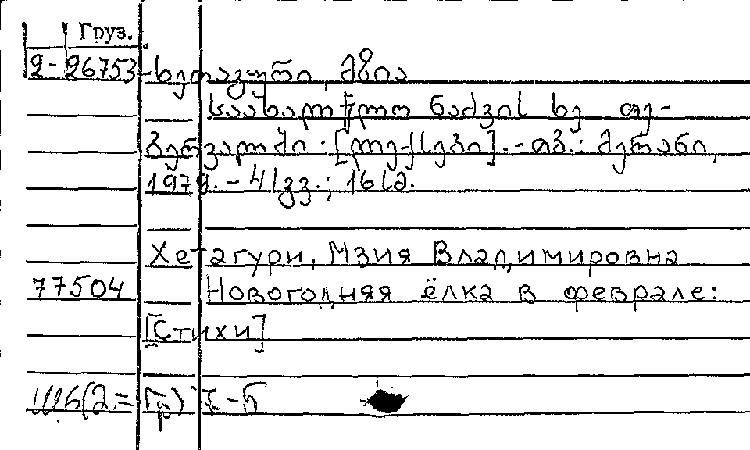 Груз.
2-26753 ხეთაგური, მზია
საახალწლო ნაძვის ხე თე-
ბერვალში : [ლექსები]. - თბ.: მერანი,
1979. - 41გვ.; 16სმ.
Хетагури, Мзия Владимировна
77504 Новогодняя ёлка в феврале:
[Стихи]
Ш6(2=Гр) Х-6